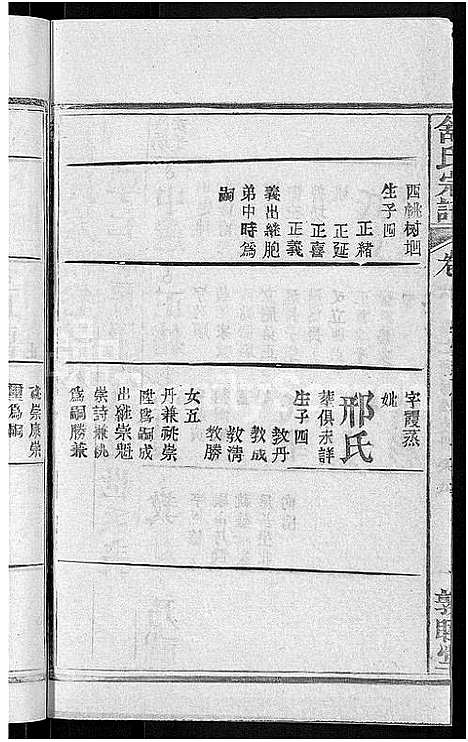 舒氏宗譜
卷
敦睦堂
西桃树堌
生子四
正緒
正延
正喜
正義
義出繼胞
弟中時為
嗣
字霞蒸
姚
邢氏
葬俱未詳
生子四
教丹
教成
教淸
教勝
女五
丹兼祧崇
陞為嗣成
出繼崇魁
崇詩兼祧
為嗣勝兼
祧崇康崇
為嗣